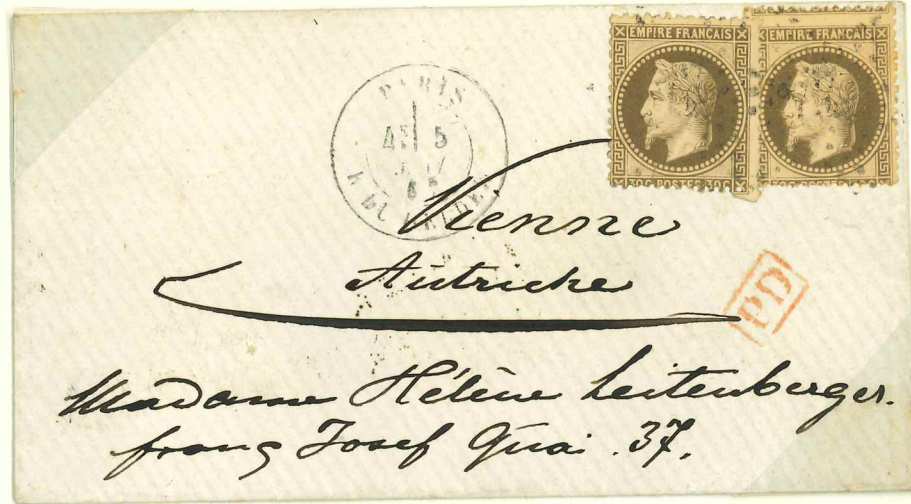 EMPIRE FRANÇAIS EMPIRE FRANÇAIS
PARIS
5
Vienne
Autriche
PD
Madame Hélène Leitenberger.
franz Josef Quai 37.